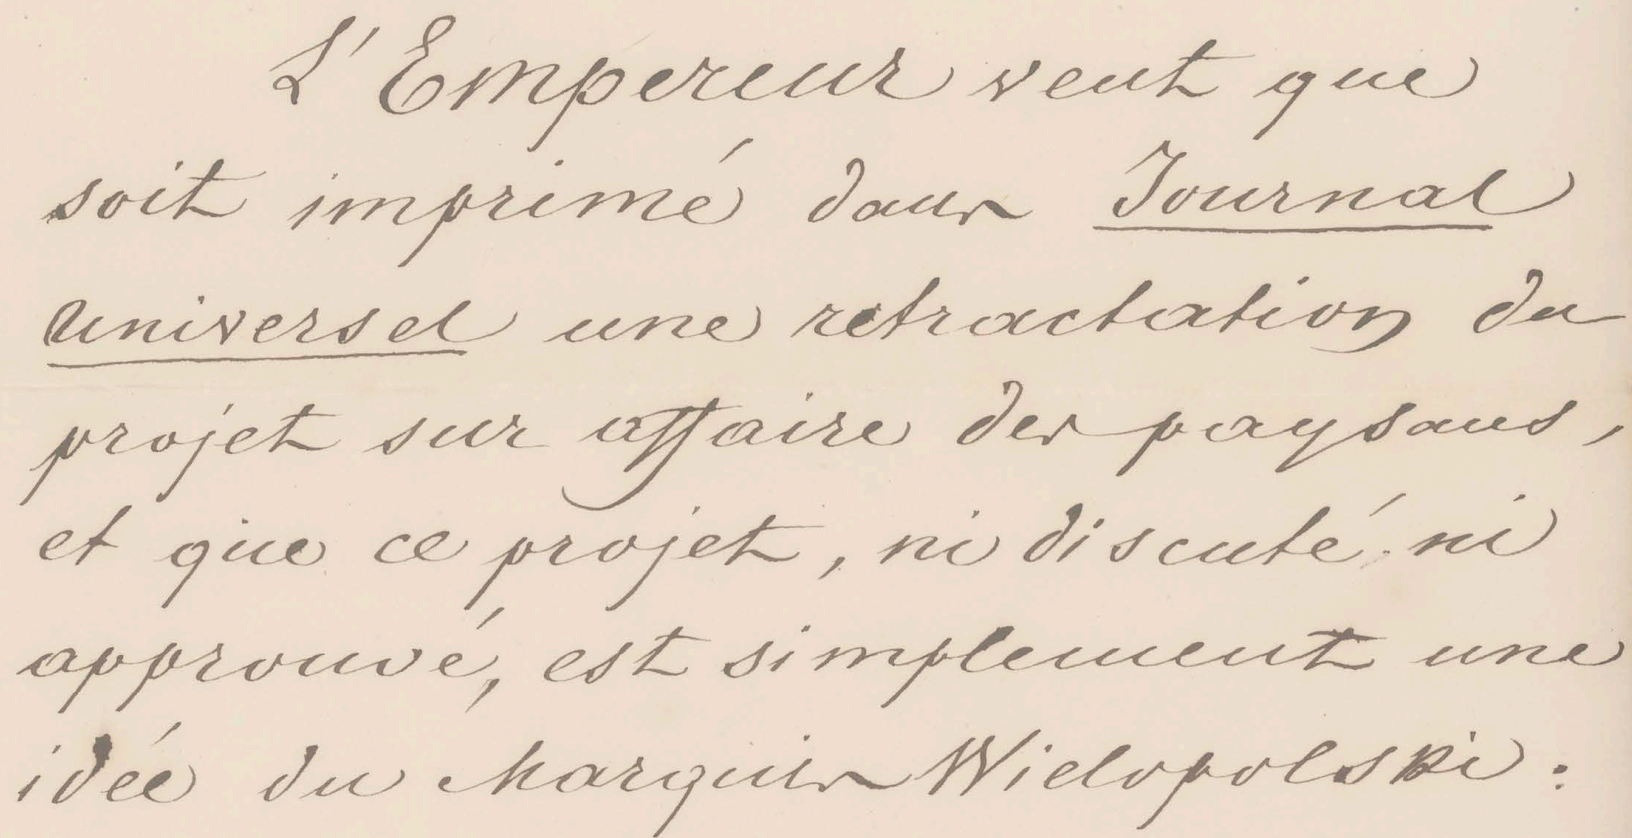 L'Empereur veut que
soit imprimé dans Journal
universel une retractation du
projet sur affaire des paysans,
et que ce projet, ni discuté ni
approuvé, est simplement une
idée du Marquis Wielopolski: